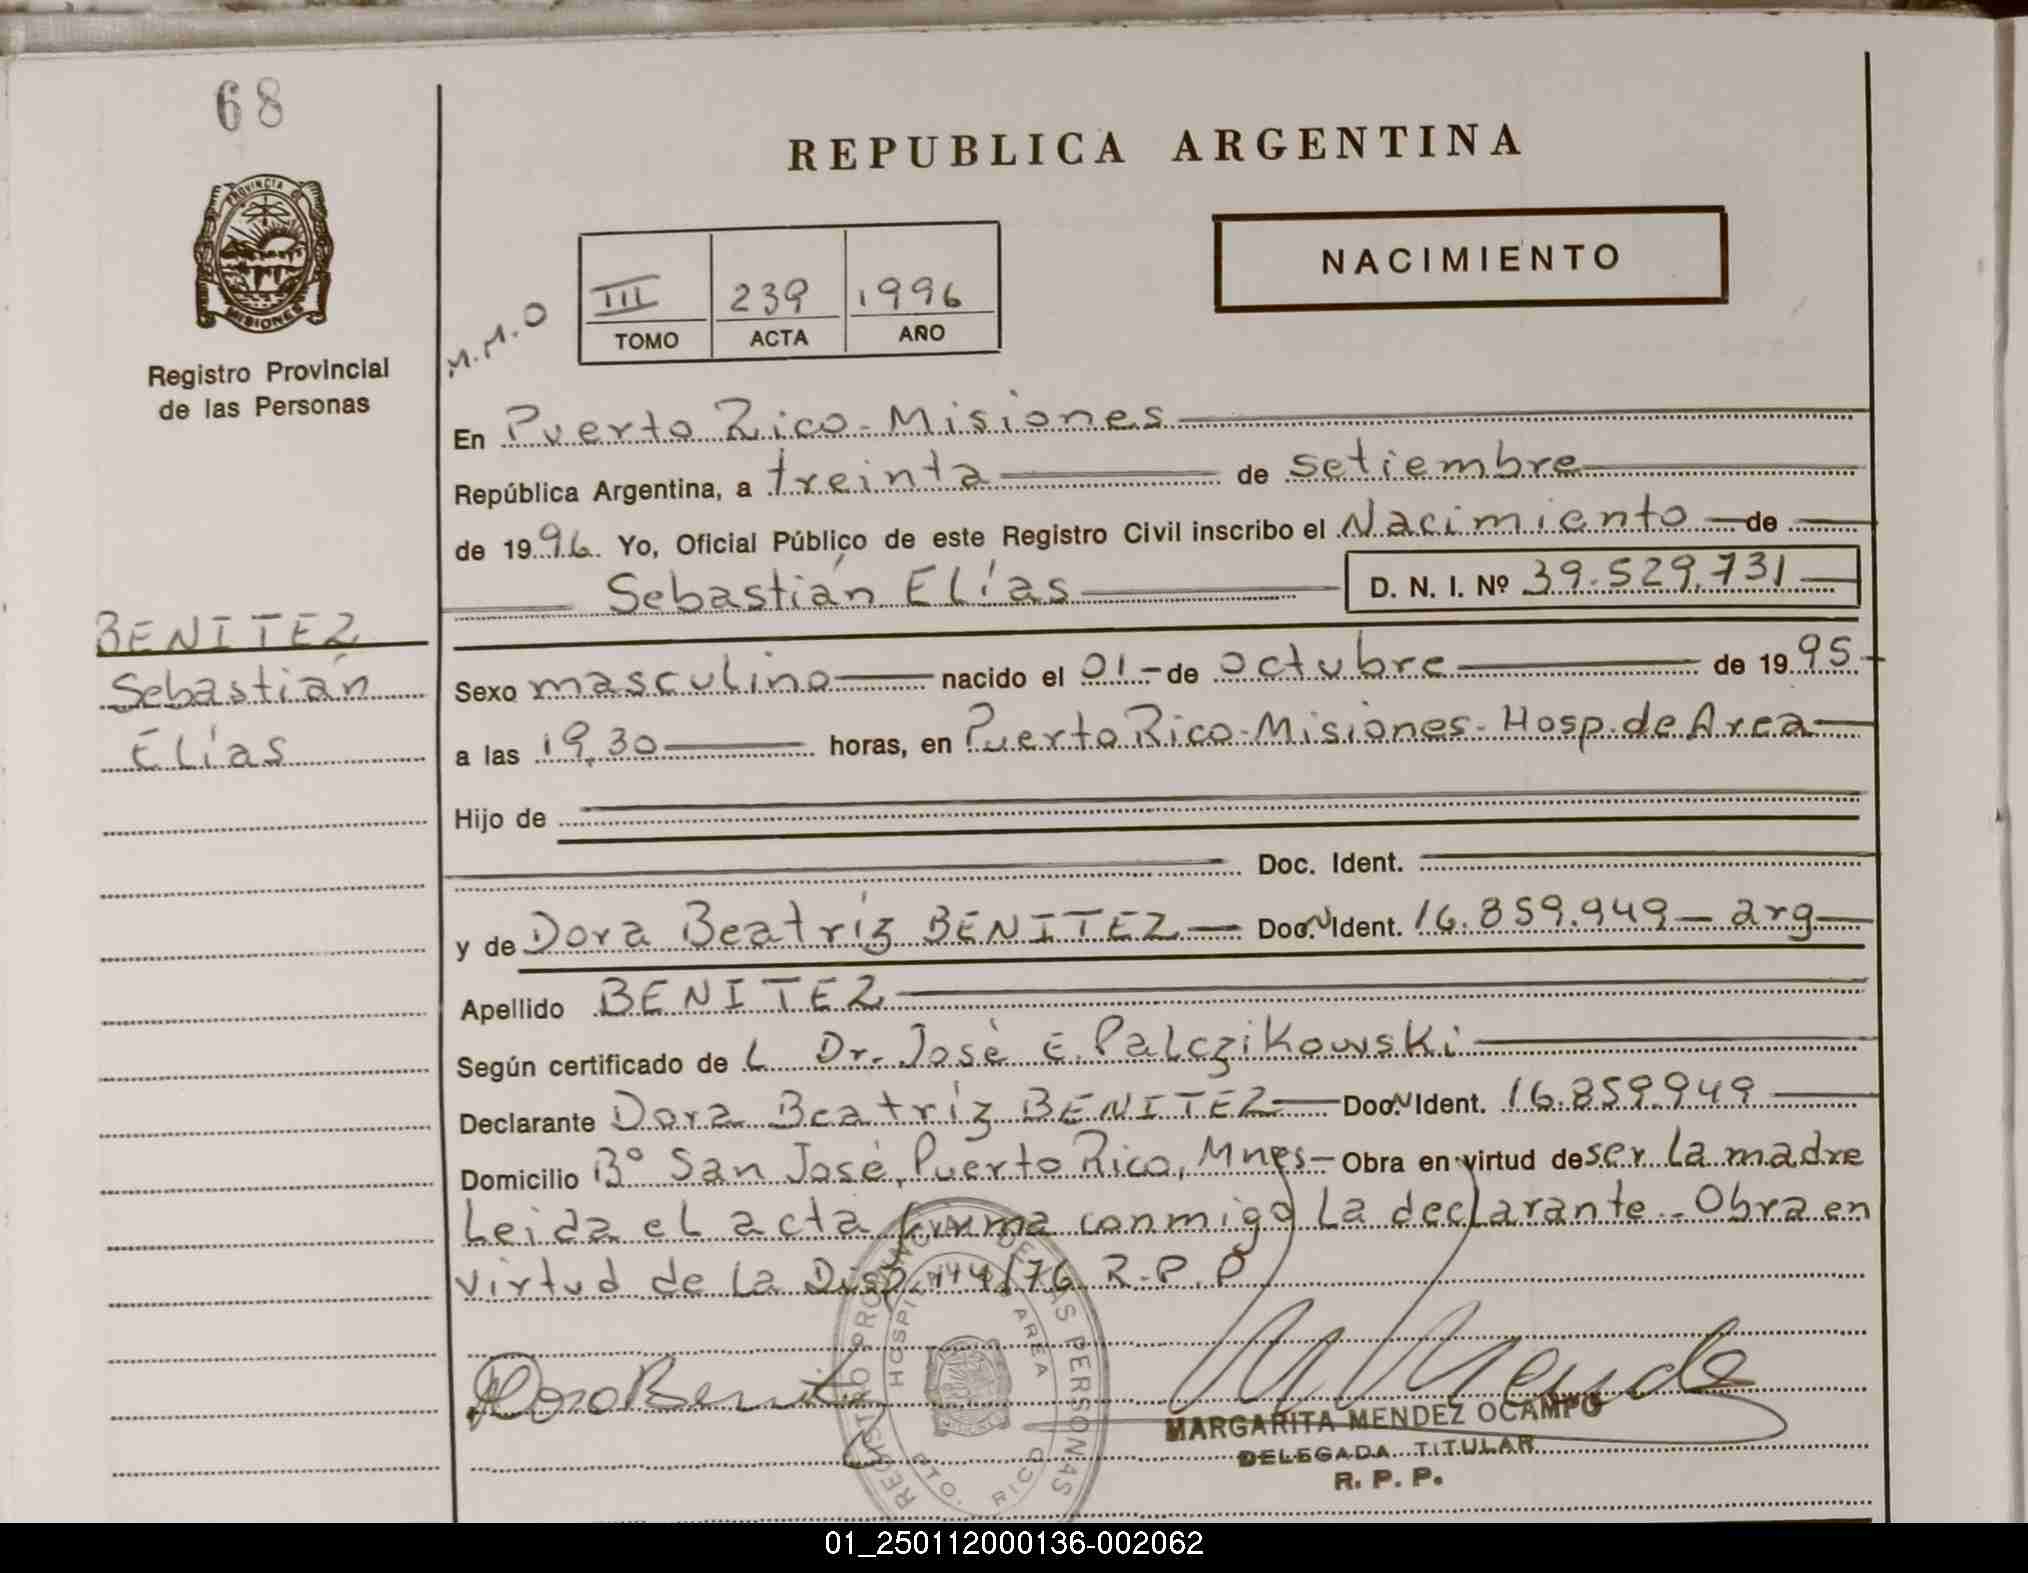 68
REPUBLICA ARGENTINA
NACIMIENTO
PROVINCIA DE
MISIONES
Registro Provincial
de las Personas
M.M.O
III 239 1996
TOMO ACTA AÑO
En Puerto Rico - Misiones
República Argentina, a treinta de setiembre
de 1996. Yo, Oficial Público de este Registro Civil inscribo el Nacimiento de
Sebastián Elías D. N. I. Nº 39.529.731
BENITEZ
Sebastián
Elías
Sexo masculino nacido el 01 - de octubre de 1995
a las 19,30 horas, en Puerto Rico - Misiones - Hosp. de Area
Hijo de
Doc. Ident.
y de Dora Beatríz BENITEZ Doc. Ident. 16.859.949 - arg
Apellido BENITEZ
Según certificado de L Dr. José E. Palczikowski
Declarante Dora Beatríz BENITEZ Doc. Ident. 16.859.949
Domicilio Bº San José, Puerto Rico, Mnes - Obra en virtud de ser la madre
Leida el acta firma conmigo la declarante - Obra en
virtud de la Disp. 144/76 R.P.P
REGISTRO PROVINCIAL DE LAS PERSONAS
AREA
PTO. RICO
Dora Benitez
M Mendez
MARGARITA MENDEZ OCAMPO
DELEGADA TITULAR
R. P. P.
01_250112000136-002062